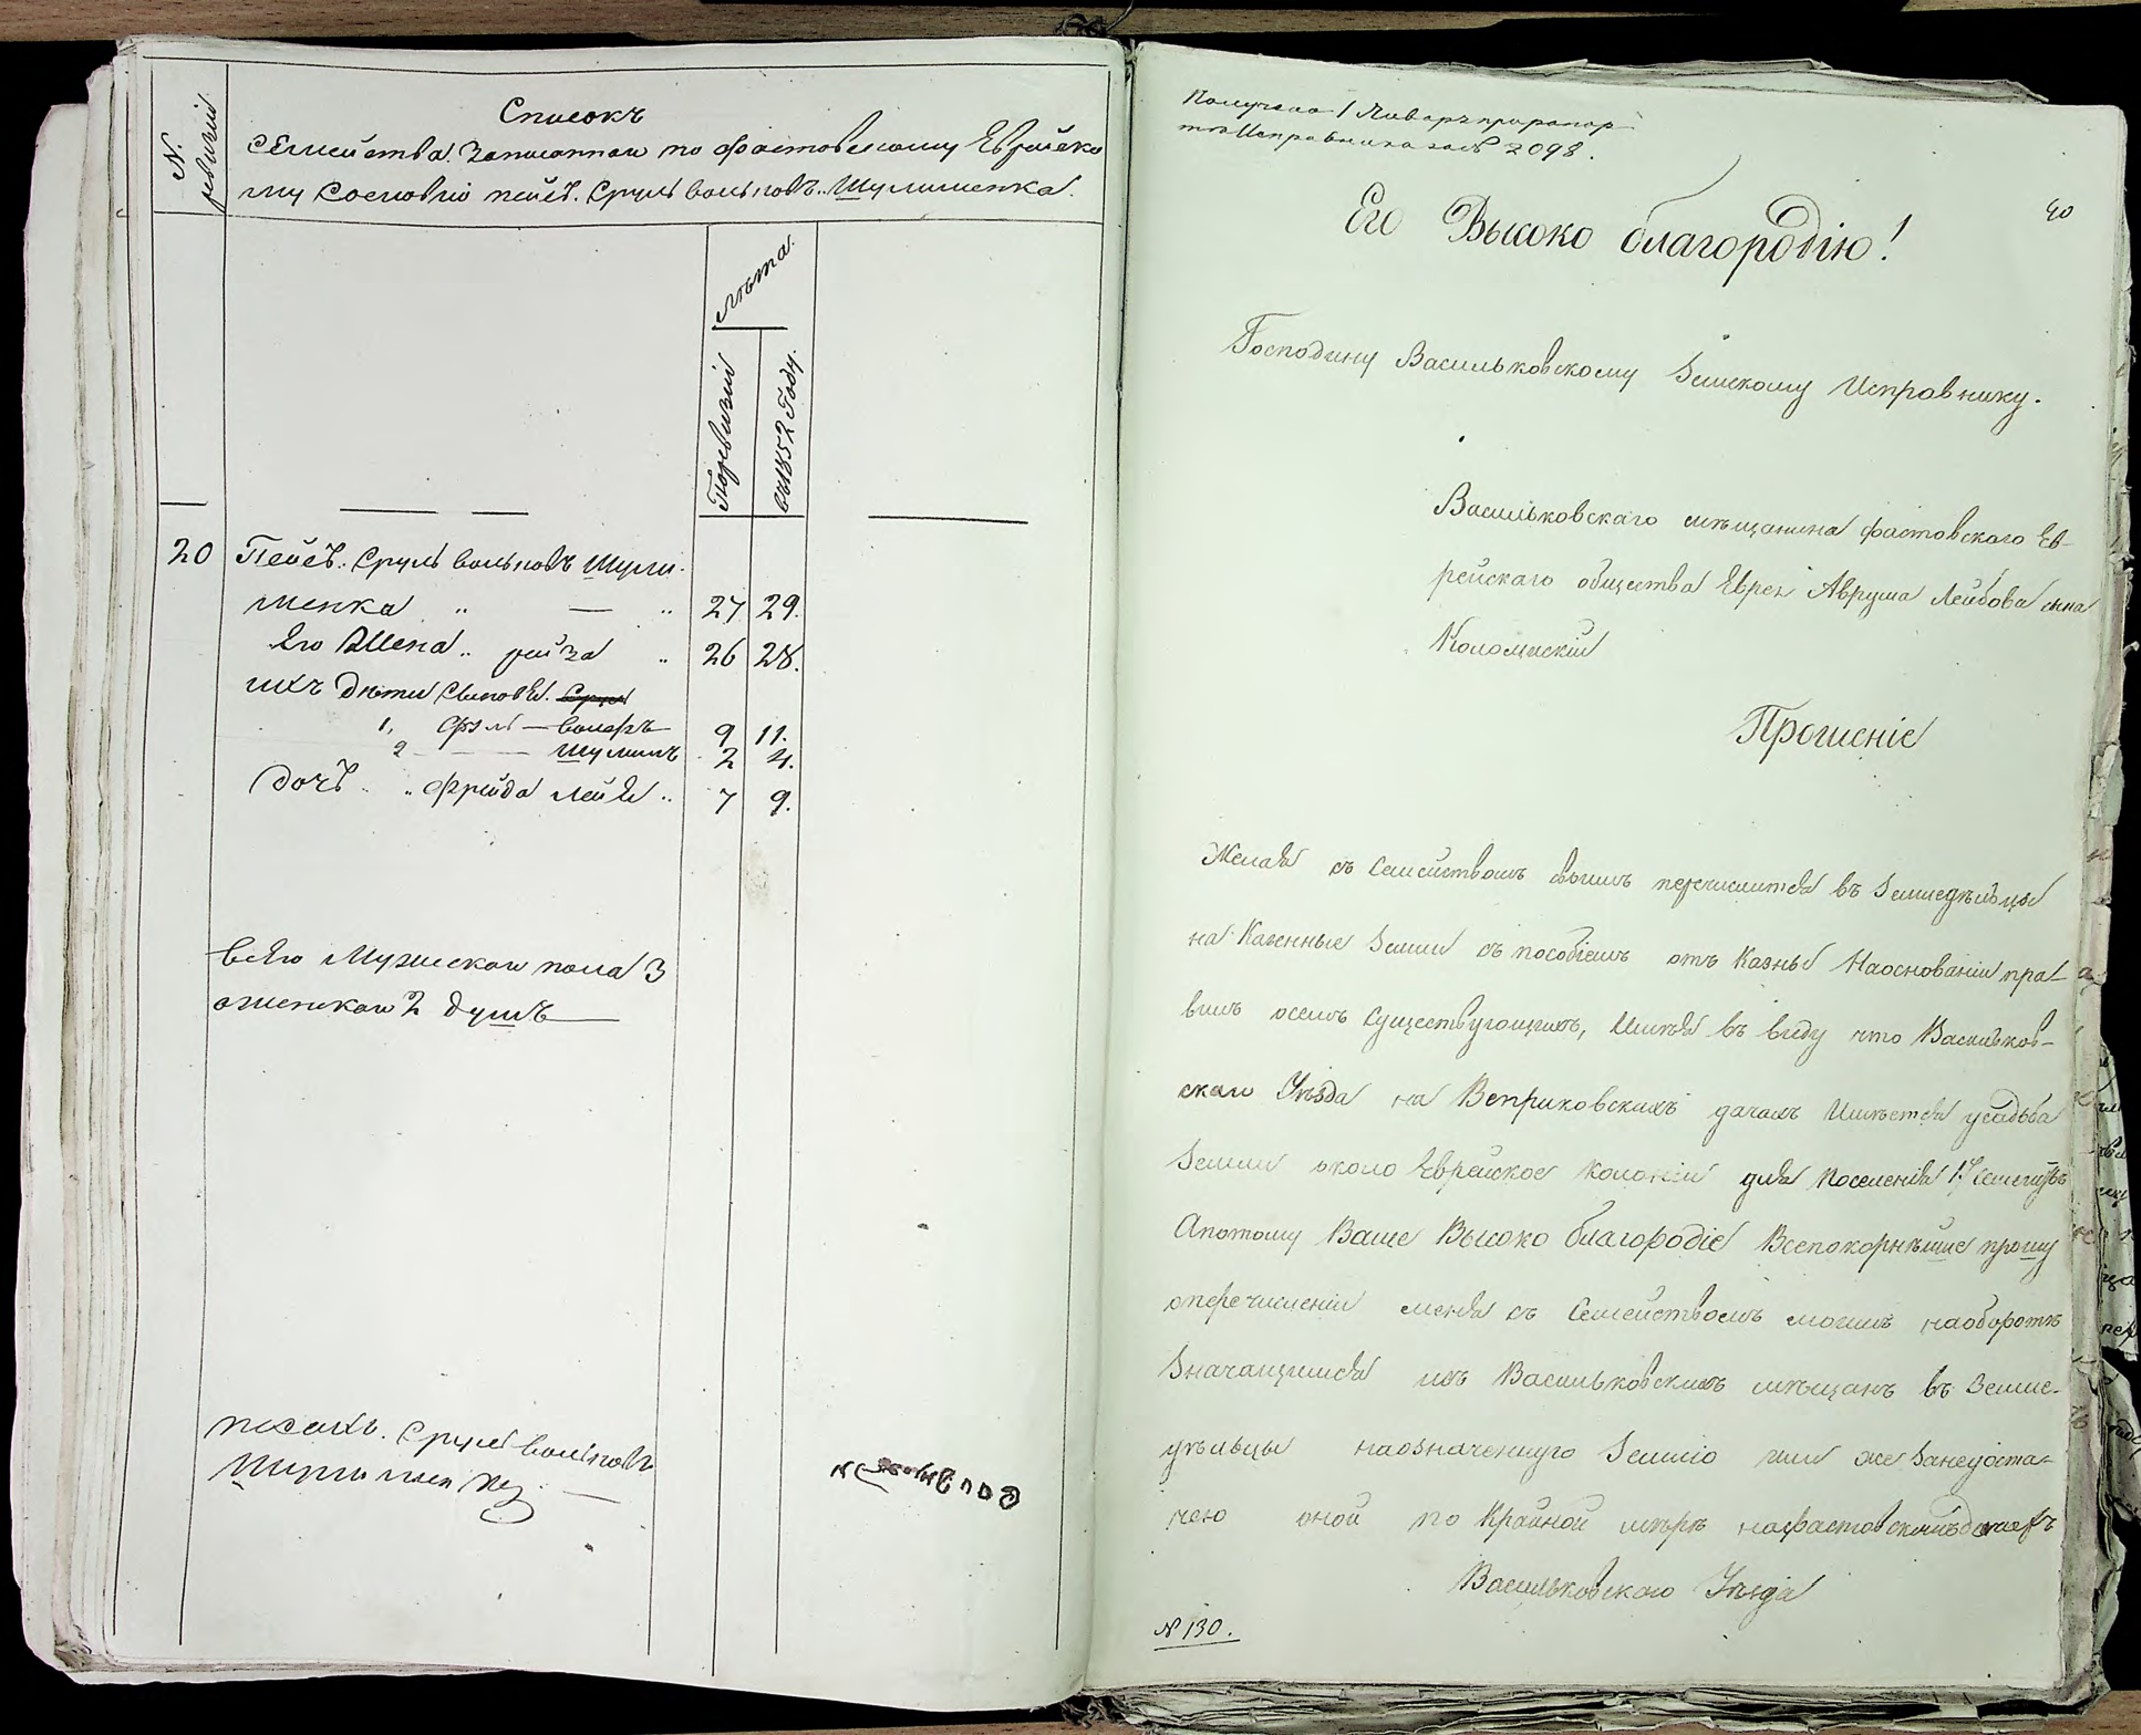 N. ревизіи
Списокъ
Семейства. Записаннаго по фастовскому Еврейско
му Сословію пейсѣ. Сруль Вольковъ.. Шулименка.
лѣта.
По ревизіи
въ 1852 Году.
20 Пейсѣ. Сруль Вольковъ Шули-
менка „ — „ 27 29.
Его Жена „ рейза „ 26 28.
ихъ дѣти Сыновья.
1, — 9 11.
2 — — Шулимъ 2 4.
дочь „ „ Фрейда Лейя „ 7 9.
всего Мужескаго пола 3
а женскаго 2 душъ
Сруль Вольковъ
Получено 1 Января при рапор
те Исправника за № 2098.
40
Его Высоко благородію!
Господину Васильковскому Земскому Исправнику.
Васильковскаго мѣщанина фастовскаго Ев-
рейскаго общества Еврея Аврума Лейбова сына
Коломискій
Прошеніе
Желая съ Семействомъ своимъ перечислится въ Земледѣльцы
на Казенные Земли съ пособіемъ отъ Казны На основаніи пра-
вилъ осемъ Существующихъ, Имѣя въ виду что Васильков-
скаго Уѣзда на Веприковскихъ дачахъ Имѣется усадьба
Земли около Еврейское колоніи для Поселенія 17 Семействъ
А потому Ваше Высоко благородіе Всепокорнѣише прошу
о перечисленіи меня съ Семействомъ моимъ на оборотѣ
Значащимся изъ Васильковскихъ мѣщанъ въ Земле-
дѣльцы на означенную Землю или же За недоста-
чею оной по Крайной мѣрѣ на фастовскихъ дачахъ
Васильковскаго Уѣзда
N 130.